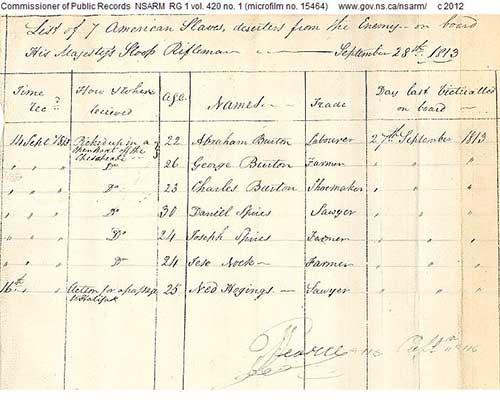 Commissioner of Public Records NSARM RG 1 vol. 420 no. 1 (microfilm no. 15464) www.gov.ns.ca/nsarm/ c 2012
List of 7 American Slaves, deserters from the Enemy on board
His Majesty's Sloop Rifleman September 28th 1813
Time How & where Age Names Trade Day last Victualled
received on board
14 Sept 1813 Picked up in a 22 Abraham Burton Labourer 27th September 1813
off the
Chesapeake Do 26 George Burton Farmer " " "
" " " Do 23 Charles Burton Shoemaker " " "
" " " Do 30 Daniel Spires Sawyer " " "
" " " Do 24 Joseph Spires Farmer " " "
" " " Do 24 Jese Nock Farmer " " "
16th " " for a passage 25 Ned Hogings Sawyer " " "
to Halifax
Pearce